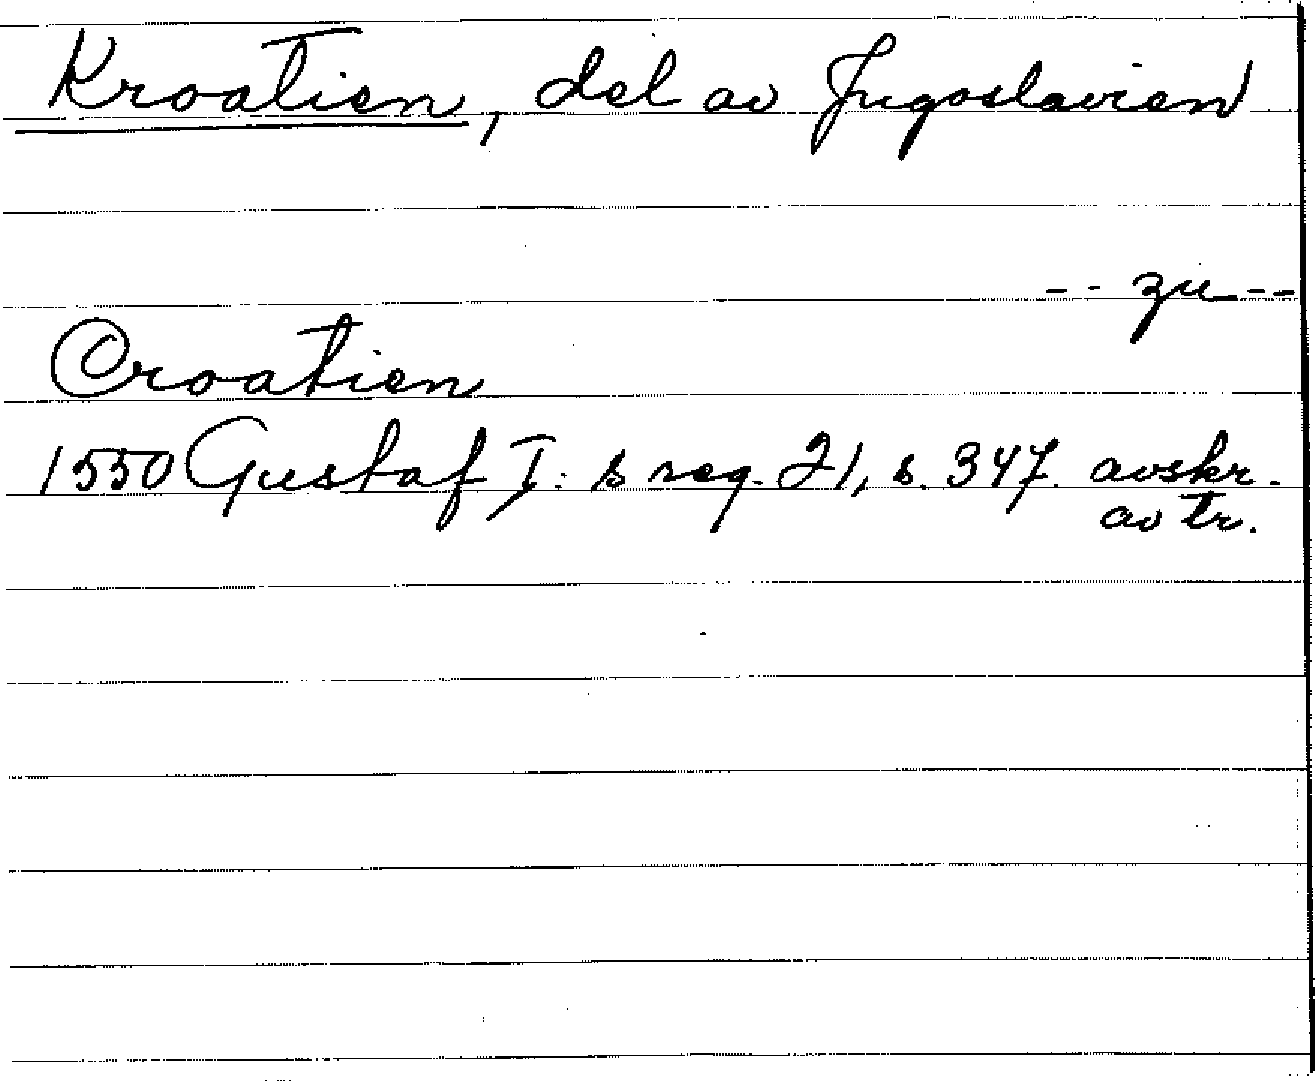 Kroatien, del av Jugoslavien
-- zu --
Croatien
1550 Gustaf I: s reg. 21, s. 347. avskr.
av tr.